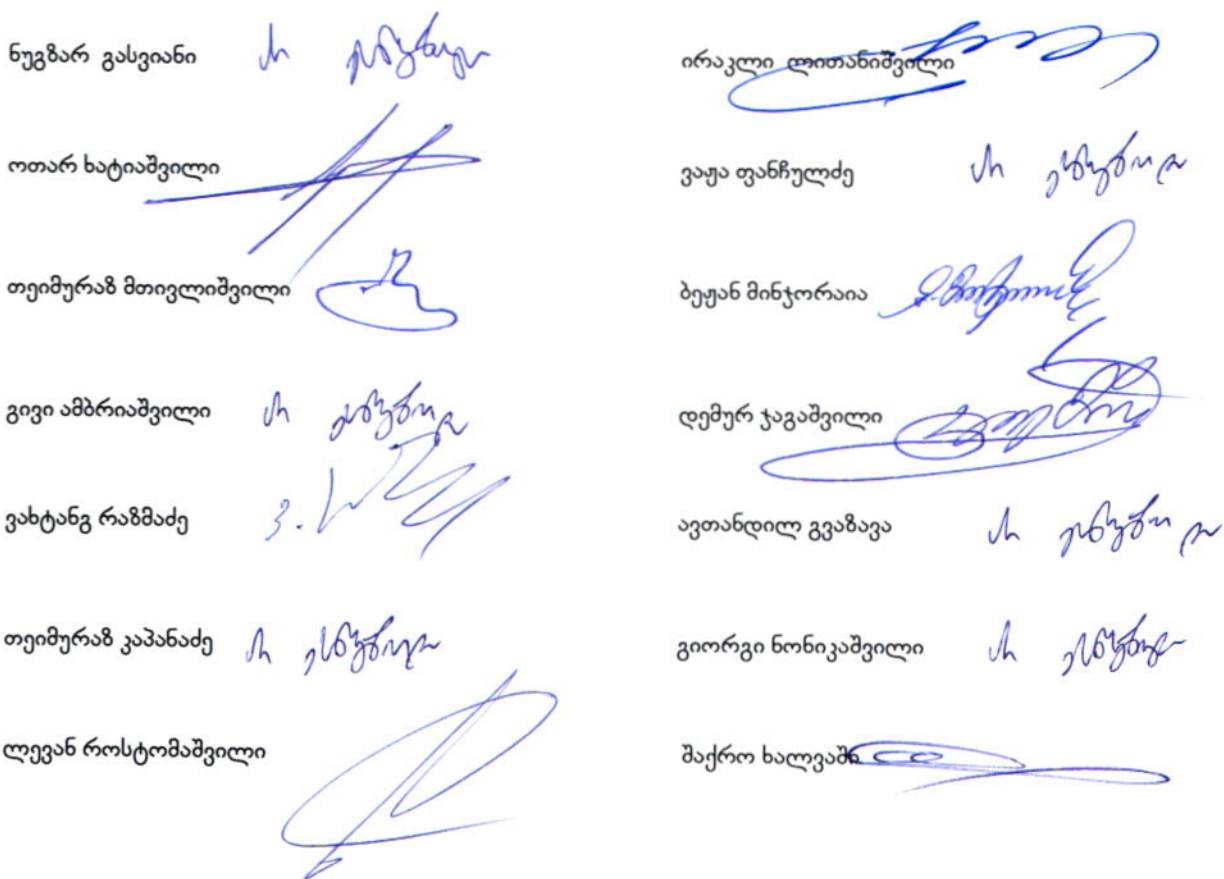 ნუგზარ გასვიანი არ ესწრებოდა
ოთარ ხატიაშვილი
თეიმურაზ მთივლიშვილი
გივი ამბრიაშვილი არ ესწრებოდა
ვახტანგ რაზმაძე
თეიმურაზ კაპანაძე არ ესწრებოდა
ლევან როსტომაშვილი
ირაკლი ლითანიშვილი
ვაჟა ფანჩულძე არ ესწრებოდა
ბეჟან მინჯორაია
დემურ ჯაგაშვილი
ავთანდილ გვაზავა არ ესწრებოდა
გიორგი ნონიკაშვილი არ ესწრებოდა
შაქრო ხალვაში